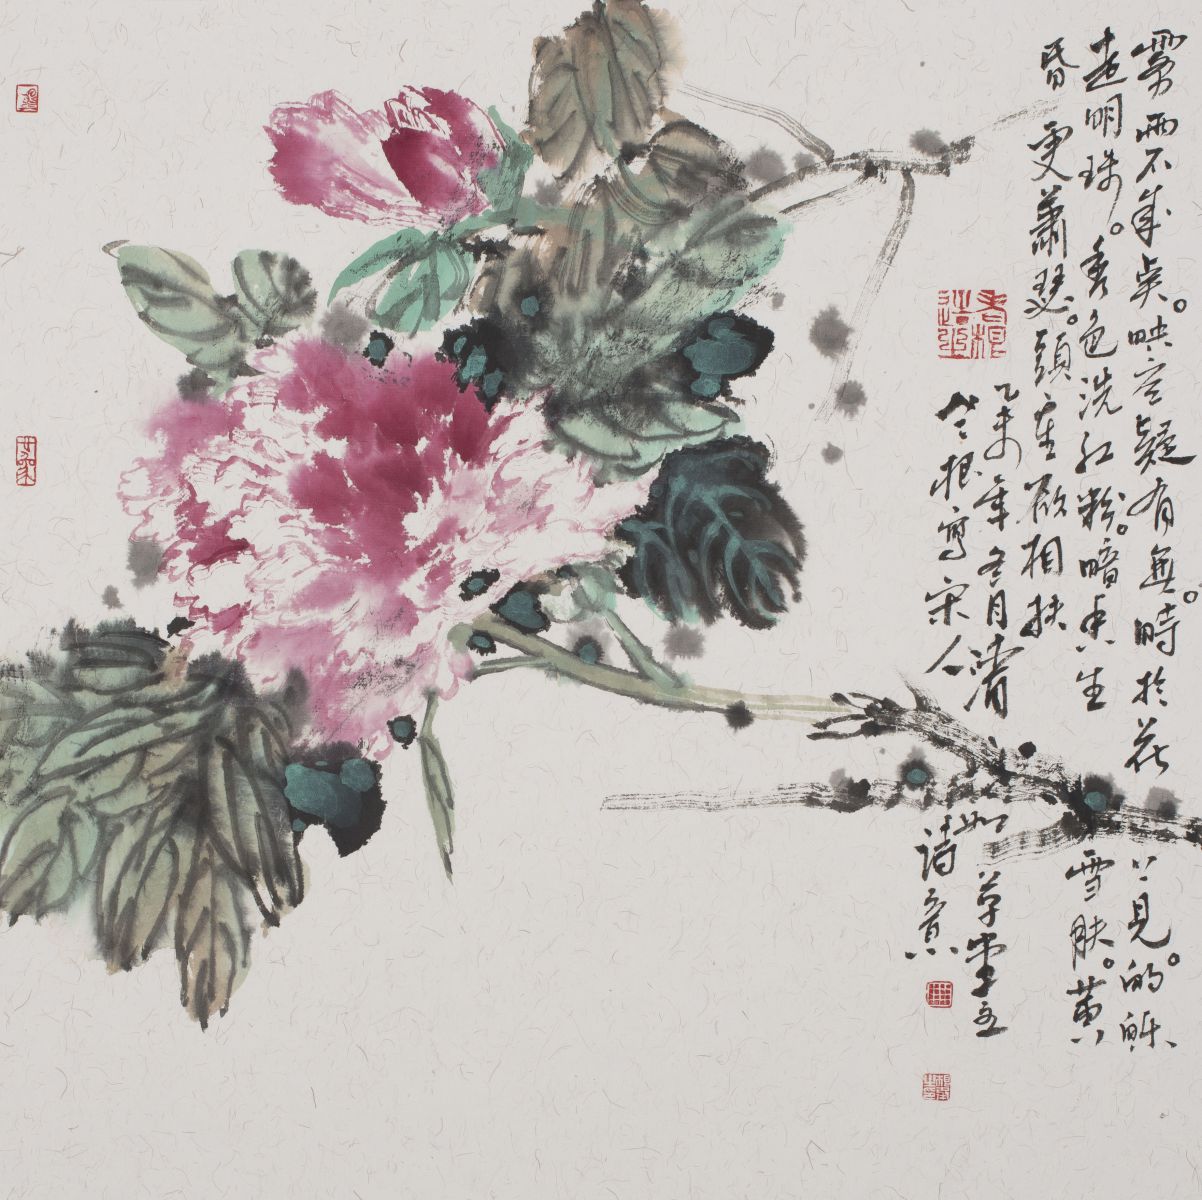 霧雨不成点。映空疑有無。時於花上見。的皪
走明珠。秀色洗红粉。暗香生雪肤。黄
昏更蕭瑟。頭重欲相扶
乙未年冬月清如草堂主
根寫宋人诗意